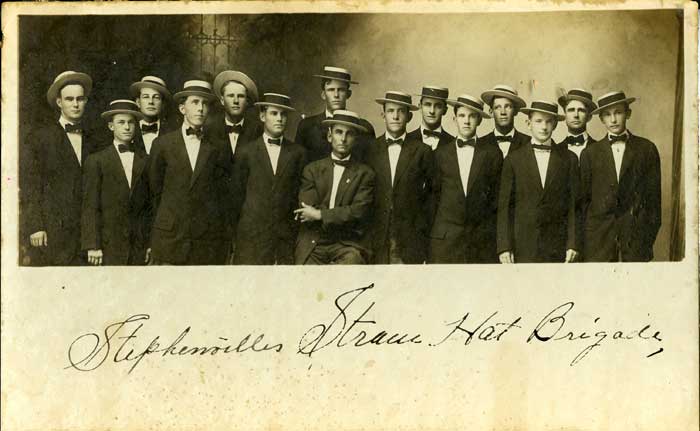 Stephenvilles Straw Hat Brigade,